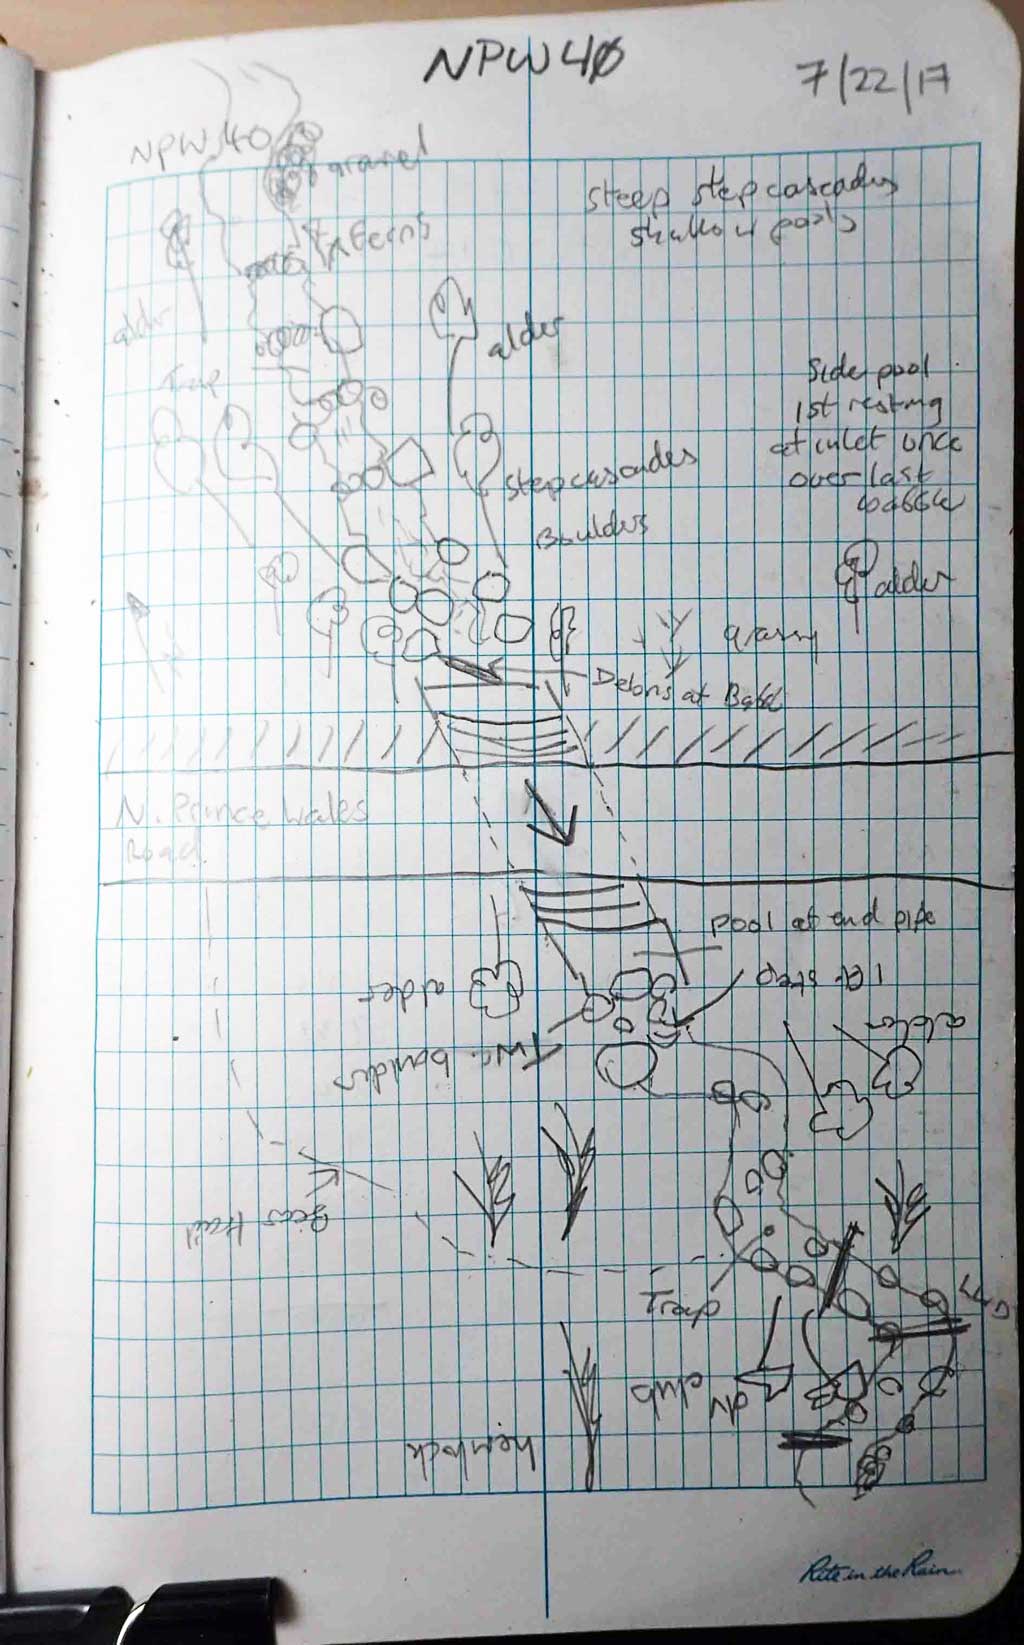 NPW 40
7/22/17
NPW 40
gravel
Steep step cascades
shallow pools
ferns
alder
alder
Trap
Side pool
1st resting
at inlet once
over last
baffle
Step cascades
Boulders
alder
grassy
Debris at Baffle
N. Prince Wales
Road
Pool at end pipe
alder
1st step
alder
Two boulders
Bear trail
Trap
LWD
dv club
hemlock
Rite in the Rain